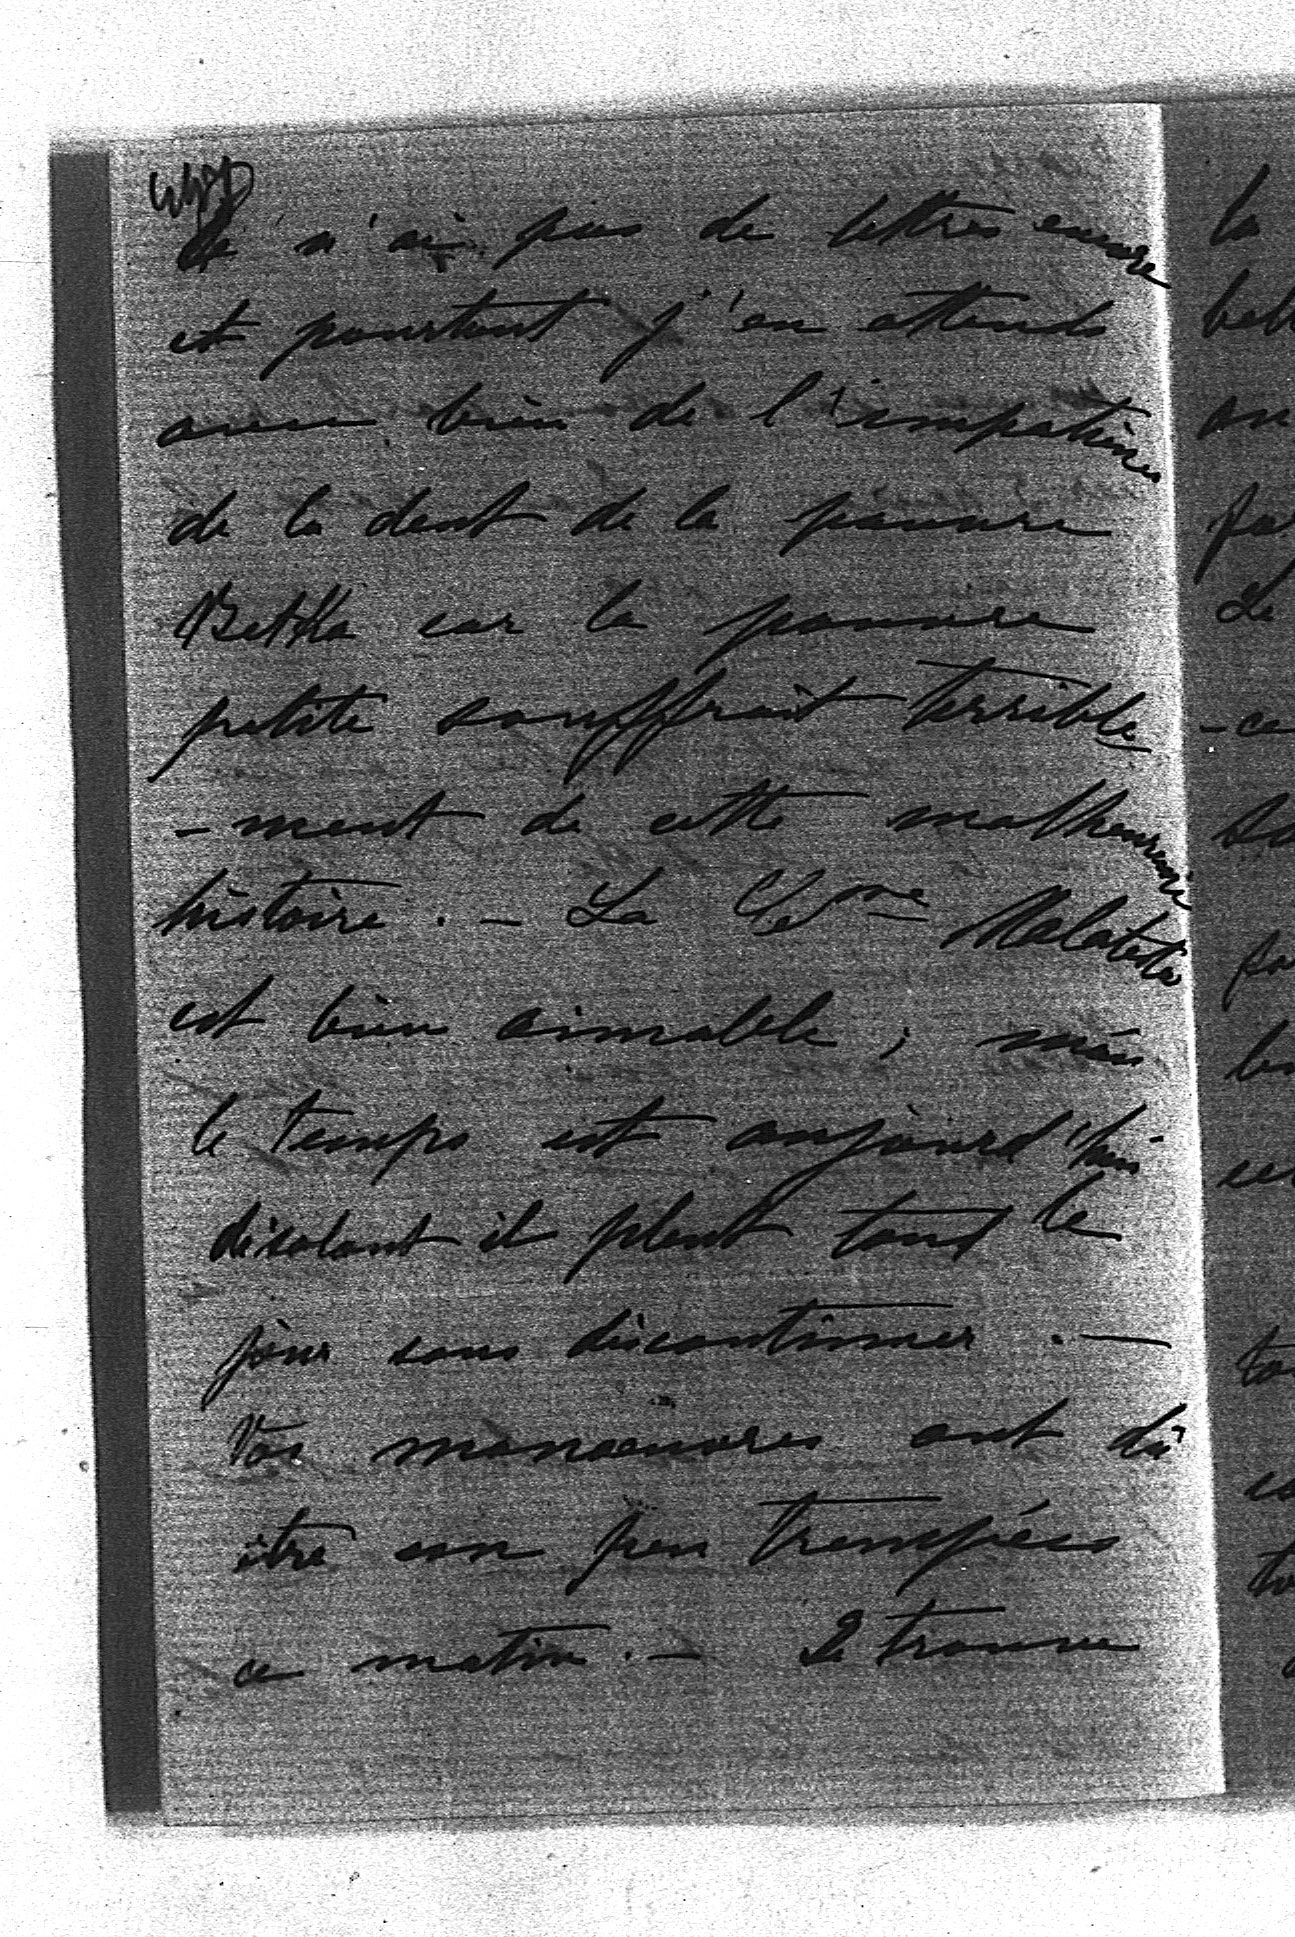 Je n'ai pas de lettres encore
et pourtant j'en attends
avec bien de l'impatience
de la dent de la pauvre
Betka car la pauvre
petite souffrait terrible
-ment de cette malheureuse
histoire. - La
est bien aimable; mais
le temps est aujourd'hui
désolant il pleut tout le
jour sans discontinuer. -
Vos manoeuvres ont dû
être un peu trempées
ce matin. - Je trouve